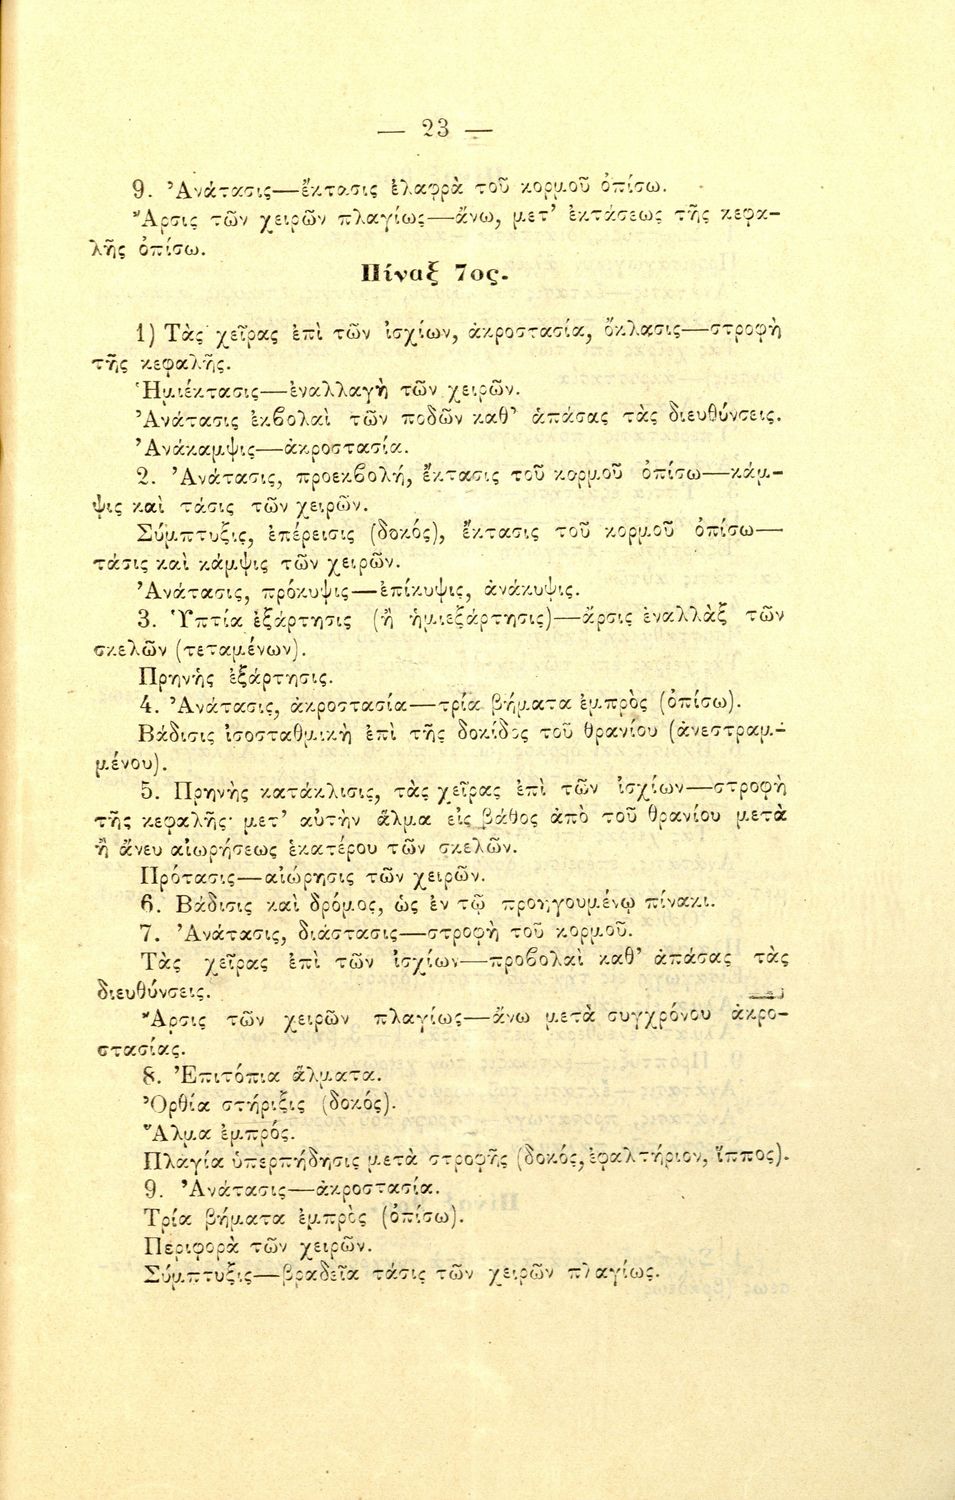 — 23 —
9. Ἀνάτασις—ἔκτασις ἐλαφρὰ τοῦ κορμοῦ ὀπίσω.
Ἄρσις τῶν χειρῶν πλαγίως—ἄνω, μετ’ ἐκτάσεως τῆς κεφα-
λῆς ὀπίσω.
Πίναξ 7ος.
1) Τὰς χεῖρας ἐπὶ τῶν ἰσχίων, ἀκροστασία, ὄκλασις—στροφὴ
τῆς κεφαλῆς.
Ἡμιέκτασις—ἐναλλαγὴ τῶν χειρῶν.
Ἀνάτασις ἐκβολαὶ τῶν ποδῶν καθ’ ἁπάσας τὰς διευθύνσεις.
Ἀνάκαμψις—ἀκροστασία.
2. Ἀνάτασις, προεκβολή, ἔκτασις τοῦ κορμοῦ ὀπίσω—κάμ-
ψις καὶ τάσις τῶν χειρῶν.
Σύμπτυξις, ἐπέρεισις (δοκός), ἔκτασις τοῦ κορμοῦ ὀπίσω—
τάσις καὶ κάμψις τῶν χειρῶν.
Ἀνάτασις, πρόκυψις—ἐπίκυψις, ἀνάκυψις.
3. Ὑπτία ἐξάρτησις (ἢ ἡμιεξάρτησις)—ἄρσις ἐναλλὰξ τῶν
σκελῶν (τεταμένων).
Πρηνὴς ἐξάρτησις.
4. Ἀνάτασις, ἀκροστασία—τρία βήματα ἐμπρὸς (ὀπίσω).
Βάδισις ἰσοσταθμικὴ ἐπὶ τῆς δοκίδος τοῦ θρανίου (ἀνεστραμ-
μένου).
5. Πρηνὴς κατάκλισις, τὰς χεῖρας ἐπὶ τῶν ἰσχίων—στροφὴ
τῆς κεφαλῆς· μετ’ αὐτὴν ἅλμα εἰς βάθος ἀπὸ τοῦ θρανίου μετὰ
ἢ ἄνευ αἰωρήσεως ἑκατέρου τῶν σκελῶν.
Πρότασις—αἰώρησις τῶν χειρῶν.
6. Βάδισις καὶ δρόμος, ὡς ἐν τῷ προηγουμένῳ πίνακι.
7. Ἀνάτασις, διάστασις—στροφὴ τοῦ κορμοῦ.
Τὰς χεῖρας ἐπὶ τῶν ἰσχίων—προβολαὶ καθ’ ἁπάσας τὰς
διευθύνσεις.
Ἄρσις τῶν χειρῶν πλαγίως—ἄνω μετὰ συγχρόνου ἀκρο-
στασίας.
8. Ἐπιτόπια ἅλματα.
Ὀρθία στήριξις (δοκός).
Ἅλμα ἐμπρός.
Πλαγία ὑπερπήδησις μετὰ στροφῆς (δοκός, ἐφαλτήριον, ἵππος).
9. Ἀνάτασις—ἀκροστασία.
Τρία βήματα ἐμπρὸς (ὀπίσω).
Περιφορὰ τῶν χειρῶν.
Σύμπτυξις—βραδεῖα τάσις τῶν χειρῶν πλαγίως.